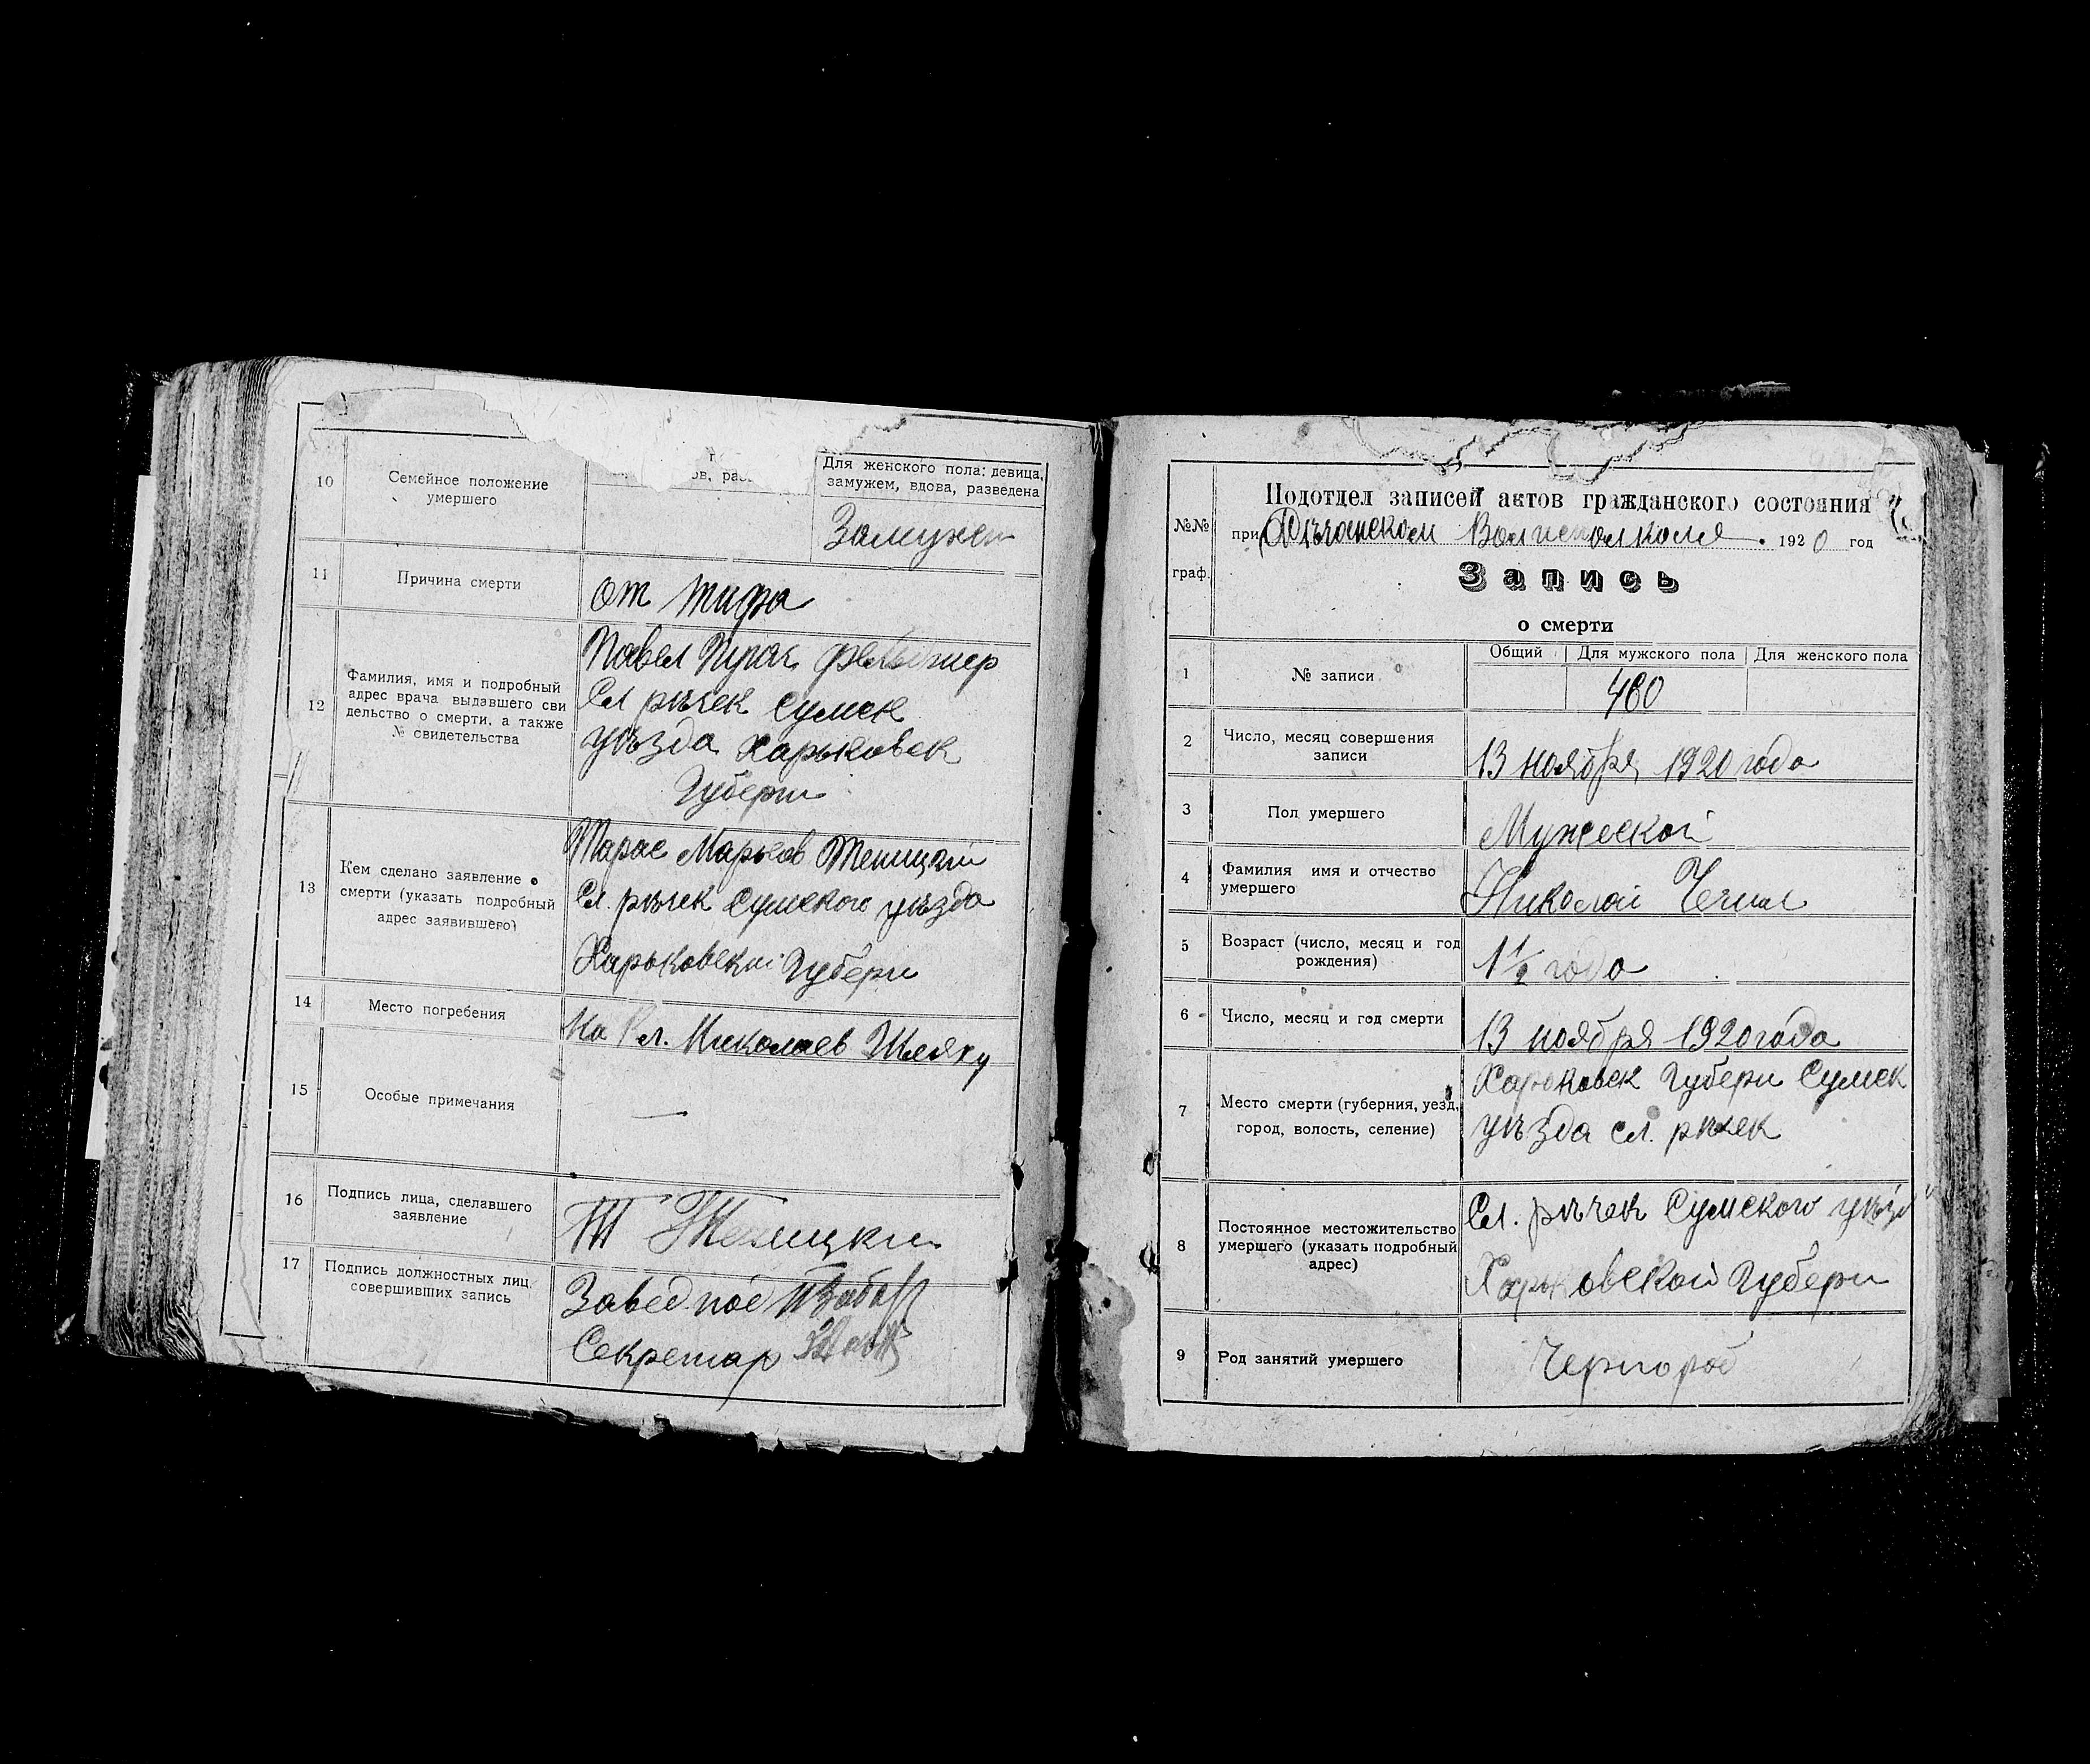 10
Семейное положение
умершего
ов, раз
Для женского пола: девица,
замужем, вдова, разведена
Замужем
11
Причина смерти
от тифа
12
Фамилия, имя и подробный
адрес врача выдавшего сви
дельство о смерти, а также
№ свидетельства
Павел фельдшер
Сл рѣчек Сумск
уѣзда Харьковск
Губерни
13
Кем сделано заявление о
смерти (указать подробный
адрес заявившего)
Тарас Марков
Сл. рѣчек Сумского уѣзда
Харьковски Губерни
14
Место погребения
На Кл. Николаев Шляху
15
Особые примечания
—
16
Подпись лица, сделавшего
заявление
17
Подпись должностных лиц,
совершивших запись
Завед под
Секретар
№№
граф.
Подотдел записей актов гражданского состояния
при Волисполкоме . 1920 год
Запись
о смерти
1
№ записи
Общий
Для мужского пола
Для женского пола
460
2
Число, месяц совершения
записи
13 ноября 1920 года
3
Пол умершего
Мужеской
4
Фамилия имя и отчество
умершего
Николай
5
Возраст (число, месяц и год
рождения)
1 1/2 года
6
Число, месяц и год смерти
13 ноября 1920 года
7
Место смерти (губерния, уезд,
город, волость, селение)
Харьковск Губерни Сумск
уѣзда сл. рѣчек
8
Постоянное местожительство
умершего (указать подробный
адрес)
Сл. рѣчек Сумского уѣзд
Харьковской Губерни
9
Род занятий умершего